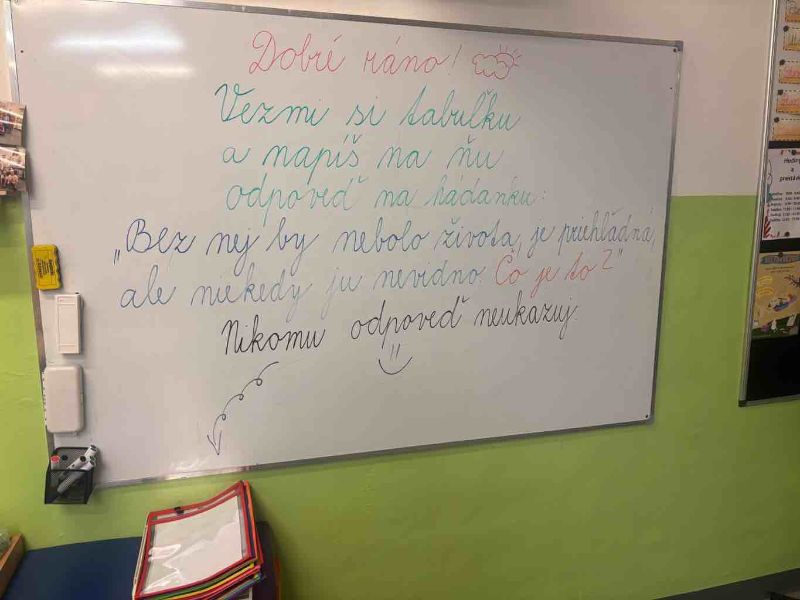 Dobré ráno!
Vezmi si tabuľku
a napíš na ňu
odpoveď na hádanku:
„Bez nej by nebolo života, je priehľadná,
ale niekedy ju nevidno. Čo je to?"
Nikomu odpoveď neukazuj.